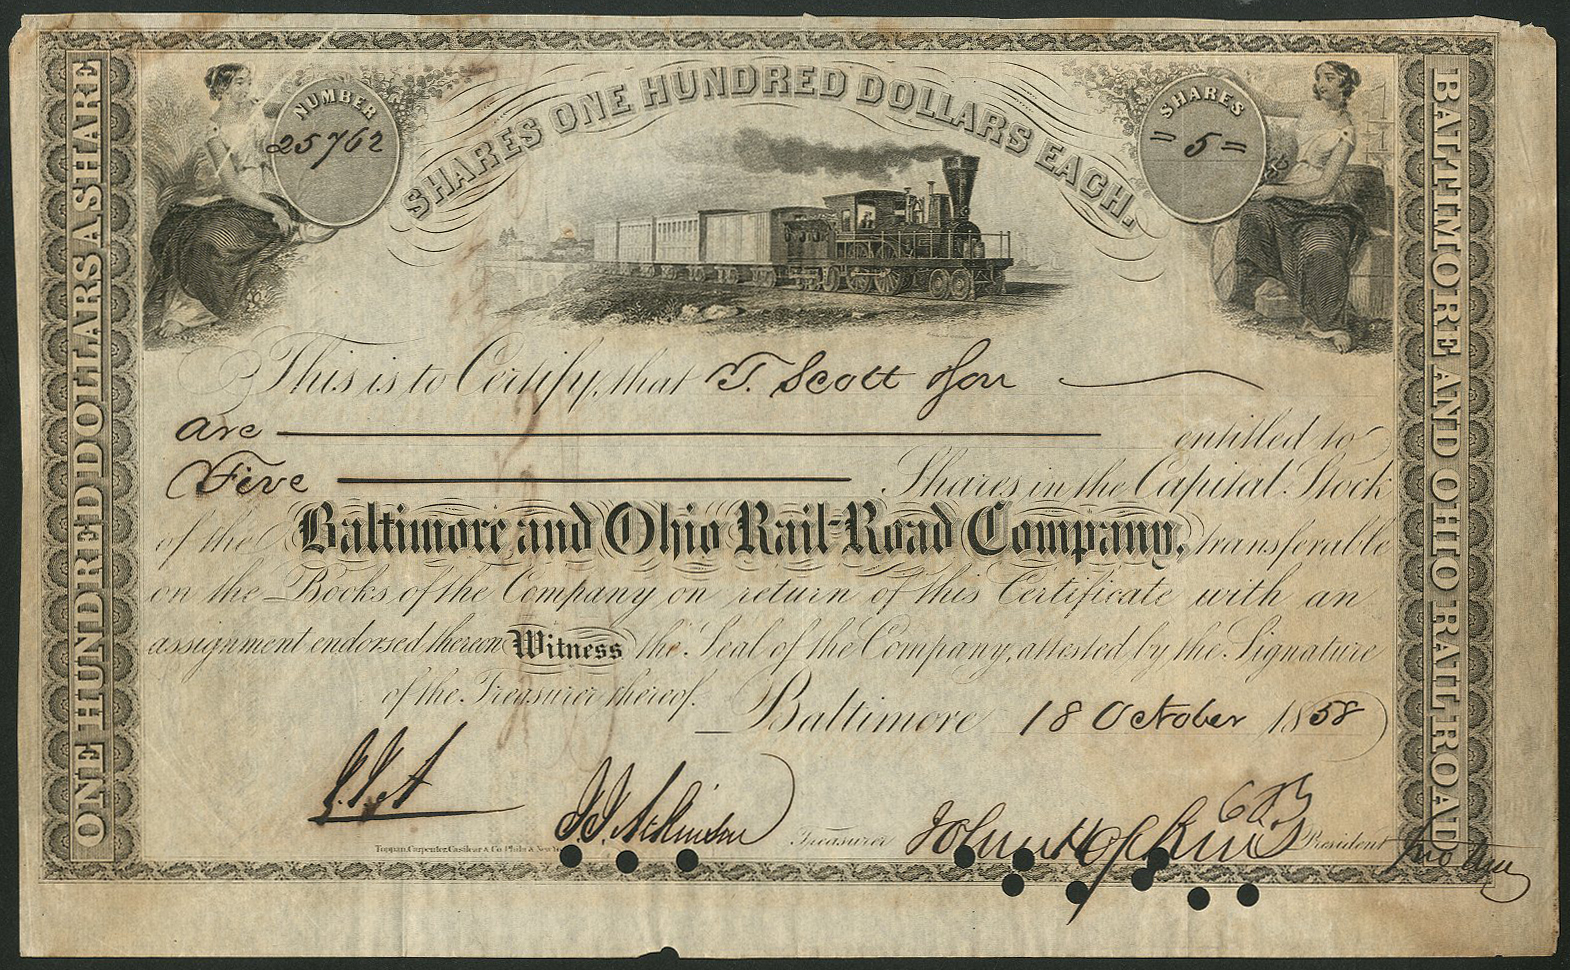 ONE HUNDRED DOLLARS A SHARE
NUMBER
25762
SHARES ONE HUNDRED DOLLARS EACH.
SHARES
= 5 =
BALTIMORE AND OHIO RAIL ROAD
This is to Certify, that T. Scott & Son
are entitled to
Five Shares in the Capital Stock
of the Baltimore and Ohio Rail-Road Company, transferable
on the Books of the Company on return of this Certificate with an
assignment endorsed thereon Witness the Seal of the Company, attested by the Signature
of the Treasurer thereof.
Baltimore 18 October 1858
J. J. Atkinson Treasurer
President
Toppan, Carpenter, Casilear & Co. Phila. & New